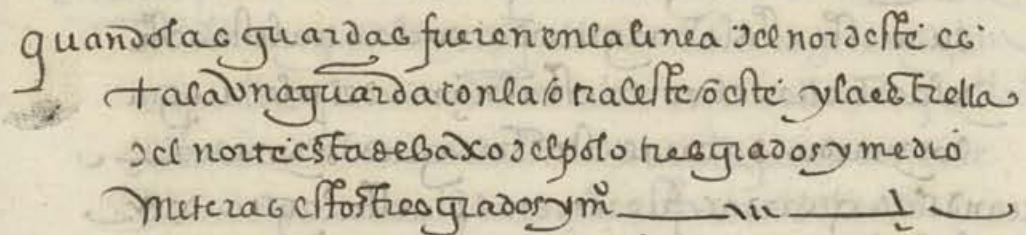 quando las guardas fueren en la linea del nordeste es
ta la una guarda con la otra leste oeste y la estrella
del norte esta debaxo del polo tres grados y medio
meteras estos tres grados y mº